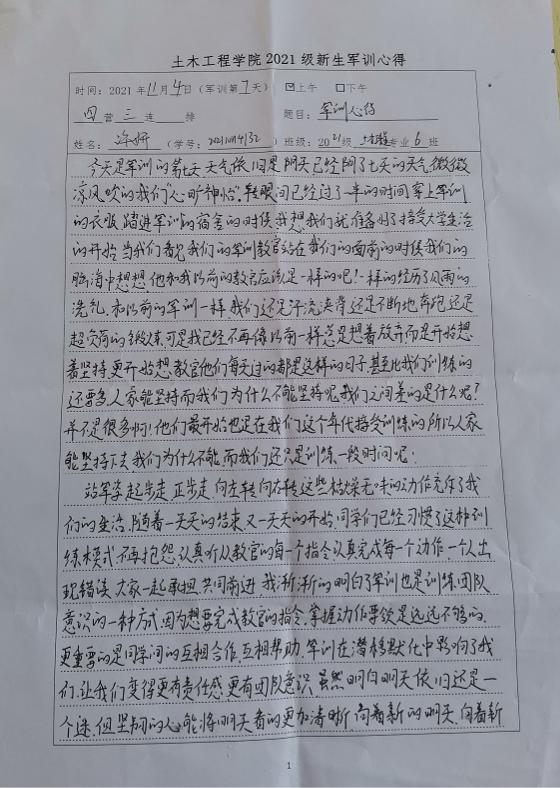 土木工程学院 2021 级新生军训心得
时间：2021 年11月4日（军训第7天） ☑上午 □下午
四营三连 排 题目：军训心得
姓名：许妍 （学号： ） 班级：2021级 专业6班
今天是军训的第七天天气依旧是阴天已经阴了七天的天气微微
凉风吹的我们"心旷神怡"，转眼间已经过了一半的时间穿上军训
的衣服踏进军训的宿舍的时候我想我们就准备好了接受大学生活
的开始当我们看见我们的军训教官站在我们的面前的时候我们的
脑海中想想他和我以前的教官应该是一样的吧！一样的经历了风雨的
洗礼，和以前的军训一样我们还是汗流浃背还是不断地奔跑还是
超负荷的锻炼可是我已经不再像以前一样总是想着放弃而是开始想
着坚持更开始想教官他们每天过的都是这样的日子甚至比我们训练的
还要多人家能坚持而我们为什么不能坚持呢我们之间差的是什么呢？
并不是很多啊！他们最开始也是在我们这个年代接受训练的所以人家
能坚持下去我们为什么不能而我们还只是训练一段时间呢！
站军姿起步走正步走向左转向右转这些枯燥无味的动作充斥了我
们的生活，随着一天天的结束又一天天的开始同学们已经习惯了这种训
练模式不再抱怨认真听从教官的每一个指令认真完成每一个动作一个人出
现错误大家一起承担共同前进 我渐渐的明白了军训也是训练团队
意识的一种方式因为想要完成教官的指令，掌握动作要领是远远不够的，
更重要的是同学间的互相合作，互相帮助，军训在潜移默化中影响了我
们，让我们变得更有责任感更有团队意识 虽然明白明天依旧还是一
个迷，但坚韧的心能将明天看的更加清晰，向着新的明天，向着新
1